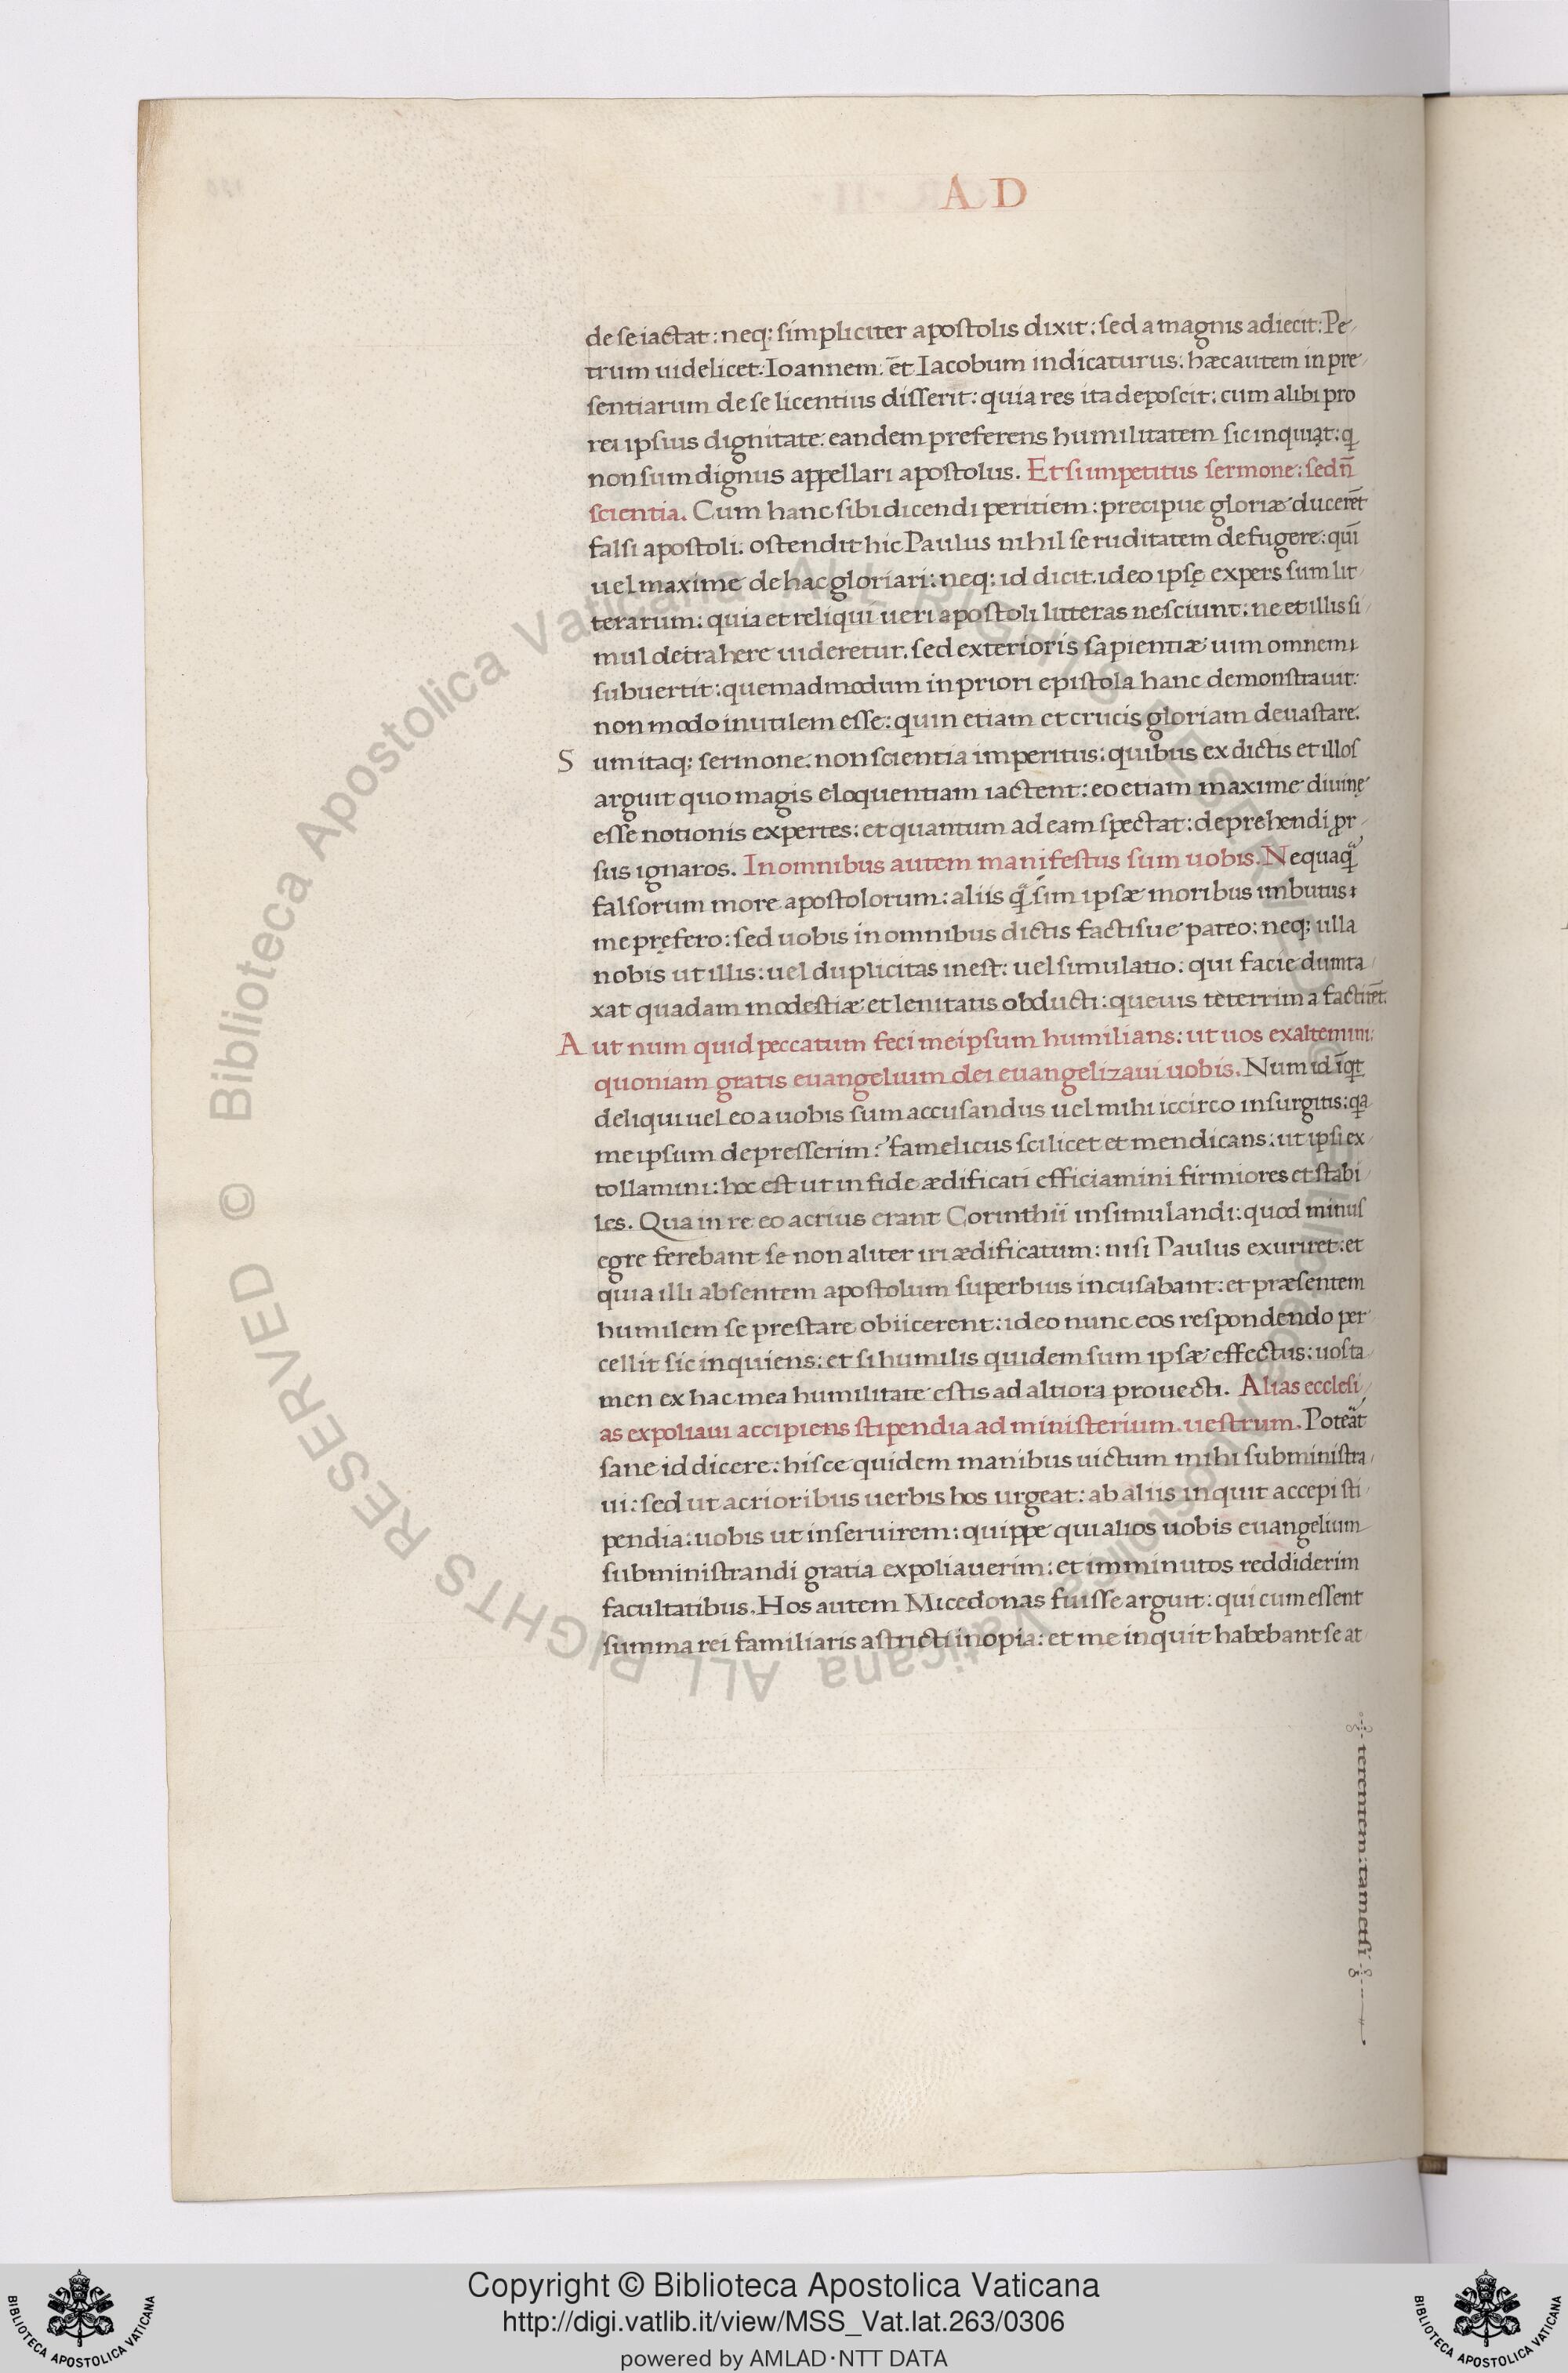 AD
de se iactat: neq; simpliciter apostolis dixit: sed a magnis adiecit: Pe
trum uidelicet: Ioannem: et Iacobum indicaturus: hæc autem in pre
sentiarum de se licentius disserit: quia res ita deposcit: cum alibi pro
rei ipsius dignitate: eandem preferens humilitatem sic inquiat: q
non sum dignus appellari apostolus. Et si impetitus sermone: sed n̄
scientia. Cum hanc sibi dicendi peritiem: precipue gloriæ ducerēt
falsi apostoli: ostendit hic Paulus nihil se ruditatem defugere: quī
uel maxime de hac gloriari: neq; id dicit. ideo ipsę expers sum lit
terarum: quia et reliqui ueri apostoli litteras nesciunt: ne et illis si
mul detrahere uideretur. sed exterioris sapientiæ uim omnem
subuertit: quemadmodum in priori epistola hanc demonstrauit:
non modo inutilem esse: quin etiam et crucis gloriam deuastare.
Sum itaq; sermone: non scientia imperitus: quibus ex dictis et illos
arguit quo magis eloquentiam iactent: eo etiam maxime diuinę
esse notionis expertes: et quantum ad eam spectat: deprehendi pr
sus ignaros. In omnibus autem manifestus sum uobis. Nequaq̃
falsorum more apostolorum: aliis q̃ sim ipsæ moribus imbutus
me pręfero: sed uobis in omnibus dictis factisue pateo: neq; ulla
nobis ut illis: uel duplicitas inest: uel simulatio: qui facie dumta
xat quadam modestiæ et lenitatis obducti: queuis teterrima factirēt.
Aut num quid peccatum feci me ipsum humilians: ut uos exaltemini:
quoniam gratis euangelium dei euangelizaui uobis. Num id īqt
deliqui uel eo a uobis sum accusandus uel mihi iccirco insurgitis: qa
me ipsum depresserim? famelicus scilicet et mendicans: ut ipsi ex
tollamini: hoc est ut in fide ædificati efficiamini firmiores et stabi
les. Qua in re eo acrius erant Corinthii insimulandi: quod minus
egre ferebant se non aliter iri ædificatum: nisi Paulus exuriret: et
quia illi absentem apostolum superbius incusabant: et præsentem
humilem se prestare obiicerent: ideo nunc eos respondendo per
cellit sic inquiens: et si humilis quidem sum ipsæ effectus: uos ta
men ex hac mea humilitate estis ad altiora prouecti. Alias ecclesi
as expoliaui accipiens stipendia ad ministerium uestrum. Poteāt
sane id dicere: hisce quidem manibus uictum mihi subministra
ui: sed ut acrioribus uerbis hos urgeat: ab aliis inquit accepi sti
pendia: uobis ut inseruirem: quippe qui alios uobis euangelium
subministrandi gratia expoliauerim: et imminutos reddiderim
facultatibus. Hos autem Micedonas fuisse arguit: qui cum essent
summa rei familiaris astricti inopia: et me inquit habebant se at
© Biblioteca Apostolica Vaticana ALL RIGHTS RESERVED
Copyright © Biblioteca Apostolica Vaticana
http://digi.vatlib.it/view/MSS_Vat.lat.263/0306
powered by AMLAD·NTT DATA
BIBLIOTECA APOSTOLICA VATICANA
BIBLIOTECA APOSTOLICA VATICANA